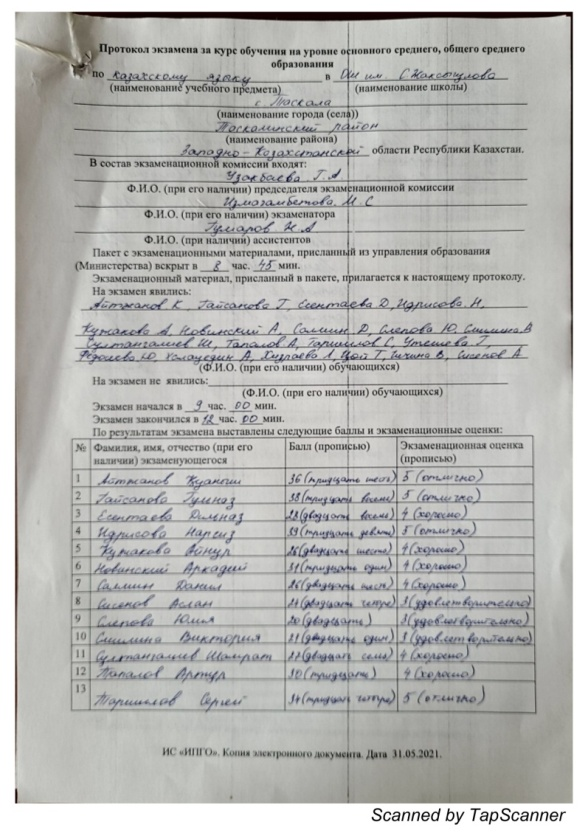 Протокол экзамена за курс обучения на уровне основного среднего, общего среднего
образования
по казахскому языку в ОШ им.
(наименование учебного предмета) (наименование школы)
с Таскала
(наименование города (села))
Таскалинский район
(наименование района)
Западно-Казахстанской области Республики Казахстан.
В состав экзаменационной комиссии входят:
Узакбаева. Г.А
Ф.И.О. (при его наличии) председателя экзаменационной комиссии
Измагамбетова. М.С
Ф.И.О. (при его наличии) экзаменатора
Гумаров. Н.А
Ф.И.О. (при наличии) ассистентов
Пакет с экзаменационными материалами, присланный из управления образования
(Министерства) вскрыт в 8 час. 45 мин.
Экзаменационный материал, присланный в пакете, прилагается к настоящему протоколу.
На экзамен явились:
Айтжанов К, Гайсанова Г, Есентаева Д, Идрисова. Н,
Кужакова А, Новинский А, Салмин. Д, Слепова Ю, Смилина. В
Султангалиев Ш, Тапалов А, Таришлов С, Утешева. Г,
Федоляев Ю, А, Л, Цой Т, В, Сисенов А
(Ф.И.О. (при его наличии) обучающихся)
На экзамен не явились:
(Ф.И.О. (при его наличии) обучающихся)
Экзамен начался в 9 час. 00 мин.
Экзамен закончился в 12 час. 00 мин.
По результатам экзамена выставлены следующие баллы и экзаменационные оценки:
№ Фамилия, имя, отчество (при его наличии) экзаменующегося Балл (прописью) Экзаменационная оценка (прописью)
1 Айтжанов Куаныш 36 (тридцать шесть) 5 (отлично)
2 Гайсанова Гулназ 38 (тридцать восемь) 5 (отлично)
3 Есентаева Дильназ 28 (двадцать восемь) 4 (хорошо)
4 Идрисова Наргиз 39 (тридцать девять) 5 (отлично)
5 Кужакова Айнур 26 (двадцать шесть) 4 (хорошо)
6 Новинский Аркадий 31 (тридцать один) 4 (хорошо)
7 Салмин Данил 26 (двадцать шесть) 4 (хорошо)
8 Сисенов Аслан 24 (двадцать четыре) 3 (удовлетворительно)
9 Слепова Юлия 20 (двадцать) 3 (удовлетворительно)
10 Смилина Виктория 21 (двадцать один) 3 (удовлетворительно)
11 Султангалиев Шынграт 27 (двадцать семь) 4 (хорошо)
12 Тапалов Артур 30 (тридцать) 4 (хорошо)
13 Таришлов Сергей 34 (тридцать четыре) 5 (отлично)
ИС «ИПГО». Копия электронного документа. Дата 31.05.2021.
Scanned by TapScanner